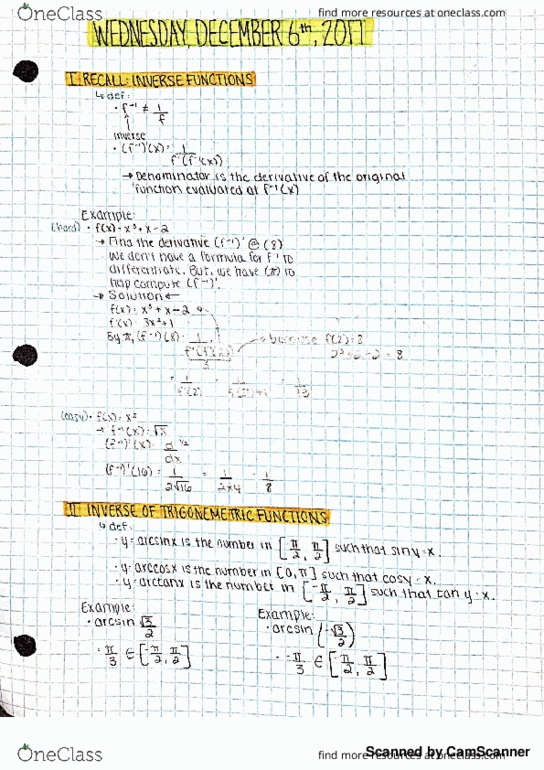 OneClass
find more resources at oneclass.com
WEDNESDAY, DECEMBER 6th, 2017
I. RECALL: INVERSE FUNCTIONS
↳ def:
· f⁻¹ ≠ 1/f
↑
inverse
· (f⁻¹)'(x) = 1/f'(f⁻¹(x))
→ Denominator is the derivative of the original
function evaluated at f⁻¹(x)
Example:
(hard) · f(x) = x³ + x - 2
→ Find the derivative (f⁻¹)' @ (8)
We don't have a formula for f⁻¹ to
differentiate. But, we have (π) to
help compute (f⁻¹)'.
→ Solution ←
f(x) = x³ + x - 2
f'(x) = 3x² + 1
By π, (f⁻¹)'(8) = 1/f'(f⁻¹(8)) → because f(2) = 8
= 1/f'(2) = = 1/13
(easy) · f(x) = x²
→ f⁻¹(x) = √x
(f⁻¹)'(x) = d/dx
(f⁻¹)'(16) = 1/2√16 = 1/2×4 = 1/8
II. INVERSE OF TRIGONEMETRIC FUNCTIONS
↳ def:
· y = arcsinx is the number in [π/2, π/2] such that siny = x.
· y = arccosx is the number in [0, π] such that cosy = x.
· y = arctanx is the number in [-π/2, π/2] such that tan y = x.
Example:
· arcsin √3/2
· π/3 ∈ [-π/2, π/2]
Example:
· arcsin (-√3/2)
· -π/3 ∈ [π/2, π/2]
OneClass
find more resources at oneclass.com
Scanned by CamScanner